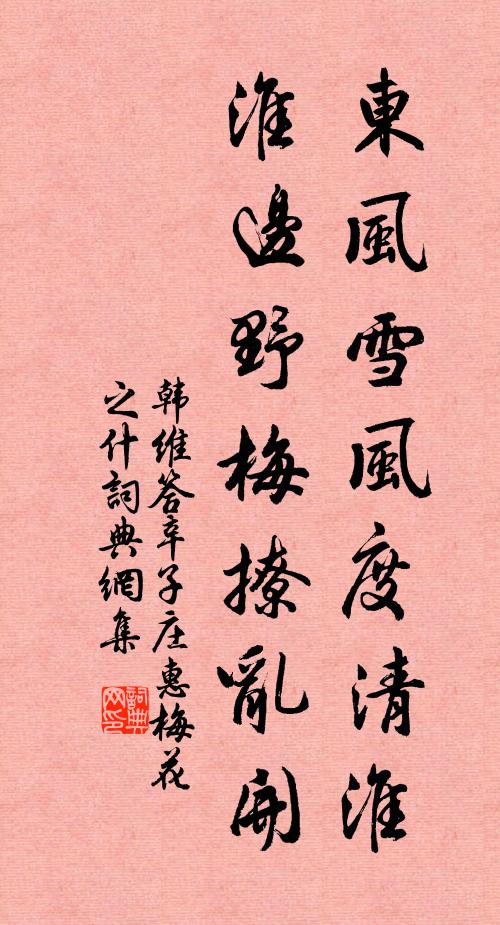 東風雪風度清淮
淮邊野梅撩亂開
韩維答辛子庄惠梅花
之什詞典網集
詞典網印